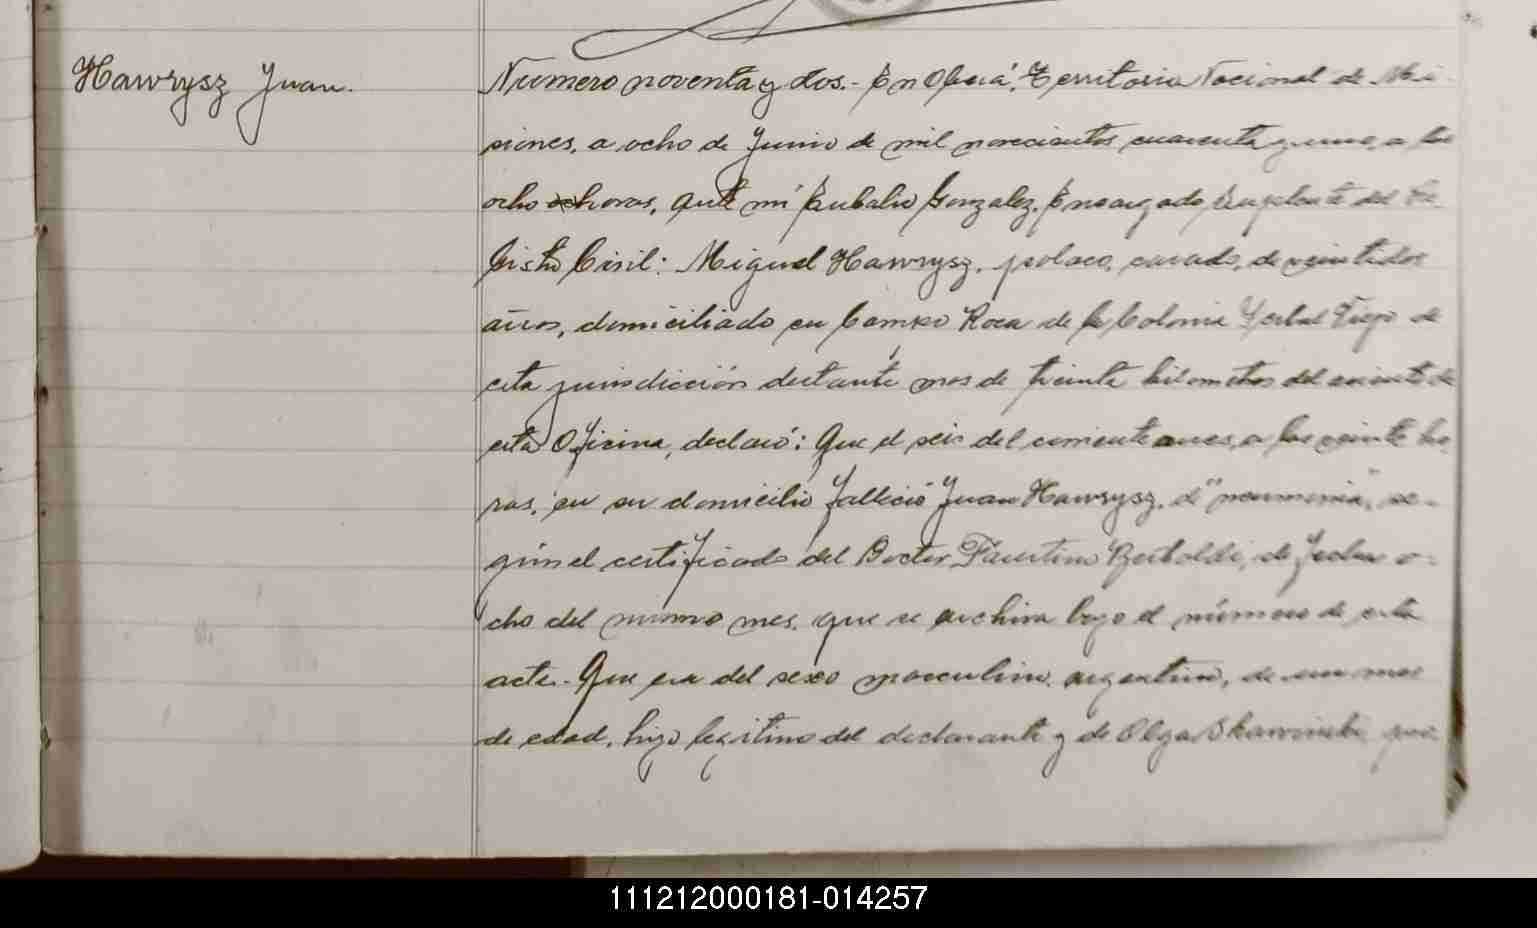 Hawrysz Juan.
Numero noventa y dos.- En Oberá, Territorio Nacional de Mi-
siones, a ocho de Junio de mil novecientos cuarenta y uno, a las
ocho horas, ante mí Eubalio Gonzalez, Encargado Suplente del Re-
gistro Civil: Miguel Hawrysz, polaco, casado, de veintidos
años, domiciliado en Campo Roca de la Colonia Yerbal Viejo de
esta jurisdicción distante mas de treinta kilometros del asiento de
esta Oficina, declaró: Que el seis del corriente mes, a las veinte ho-
ras, en su domicilio falleció Juan Hawrysz, de "neumonia", se-
gún el certificado del Doctor Faustino de fecha o-
cho del mismo mes, que se archiva bajo el número de esta
acta.- Que era del sexo masculino, argentino, de un mes
de edad, hijo legitimo del declarante y de Olga
111212000181-014257